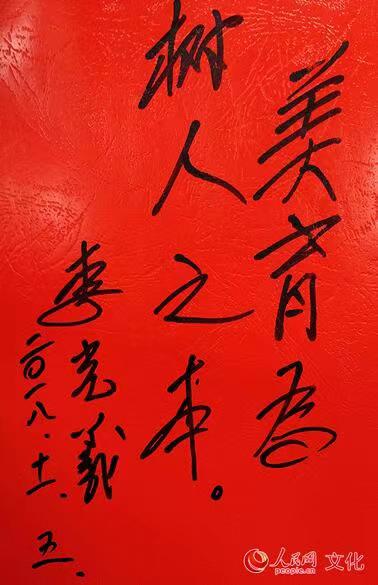 美育为
树人之本。
李光羲
二〇一八.十一.五.
人民网 文化
people.cn